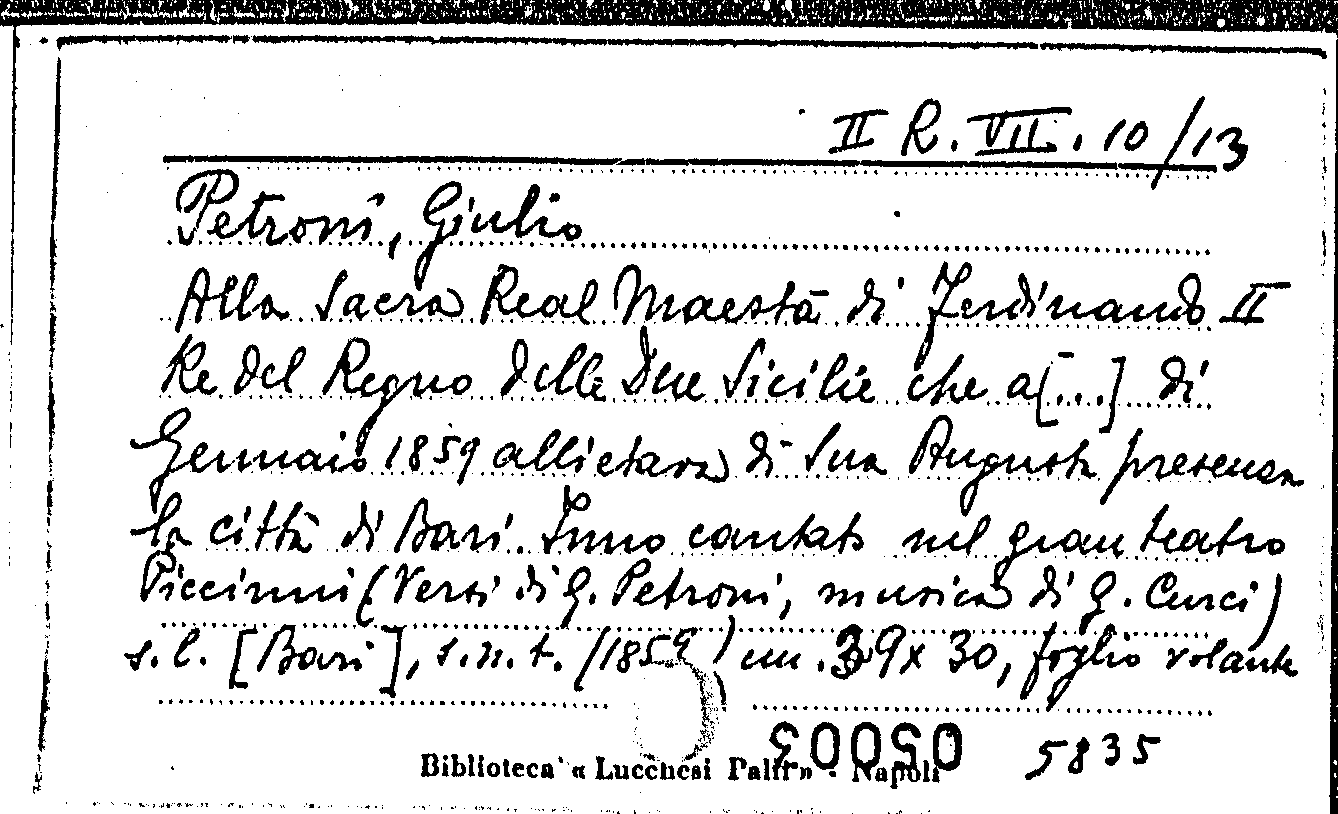 II R. VII. 10/13
Petroni, Giulio
Alla Sacra Real Maestà di Ferdinando II
Re del Regno delle Due Sicilie che a[...] di
Gennaio 1859 allietava di Sua Augusta presenza
la città di Bari. Inno cantato nel gran teatro
Piccinni (Versi di G. Petroni, musica di G. Curci)
s.l. [Bari], s.n.t. (1859) mm. 39x30, foglio volante
5835
Biblioteca « Lucchesi Palli » - Napoli